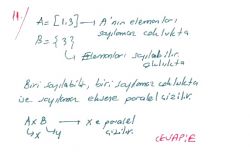 14.
A = [1,3] → A'nın elemanları
sayılamaz çoklukta
B = {3}
→ Elemanları sayılabilir
çoklukta
Biri sayılabilir, biri sayılamaz çoklukta
ise sayılmaz eksene paralel çizilir.
A x B → x e paralel
↳x ↳y çizilir.
CEVAP: E